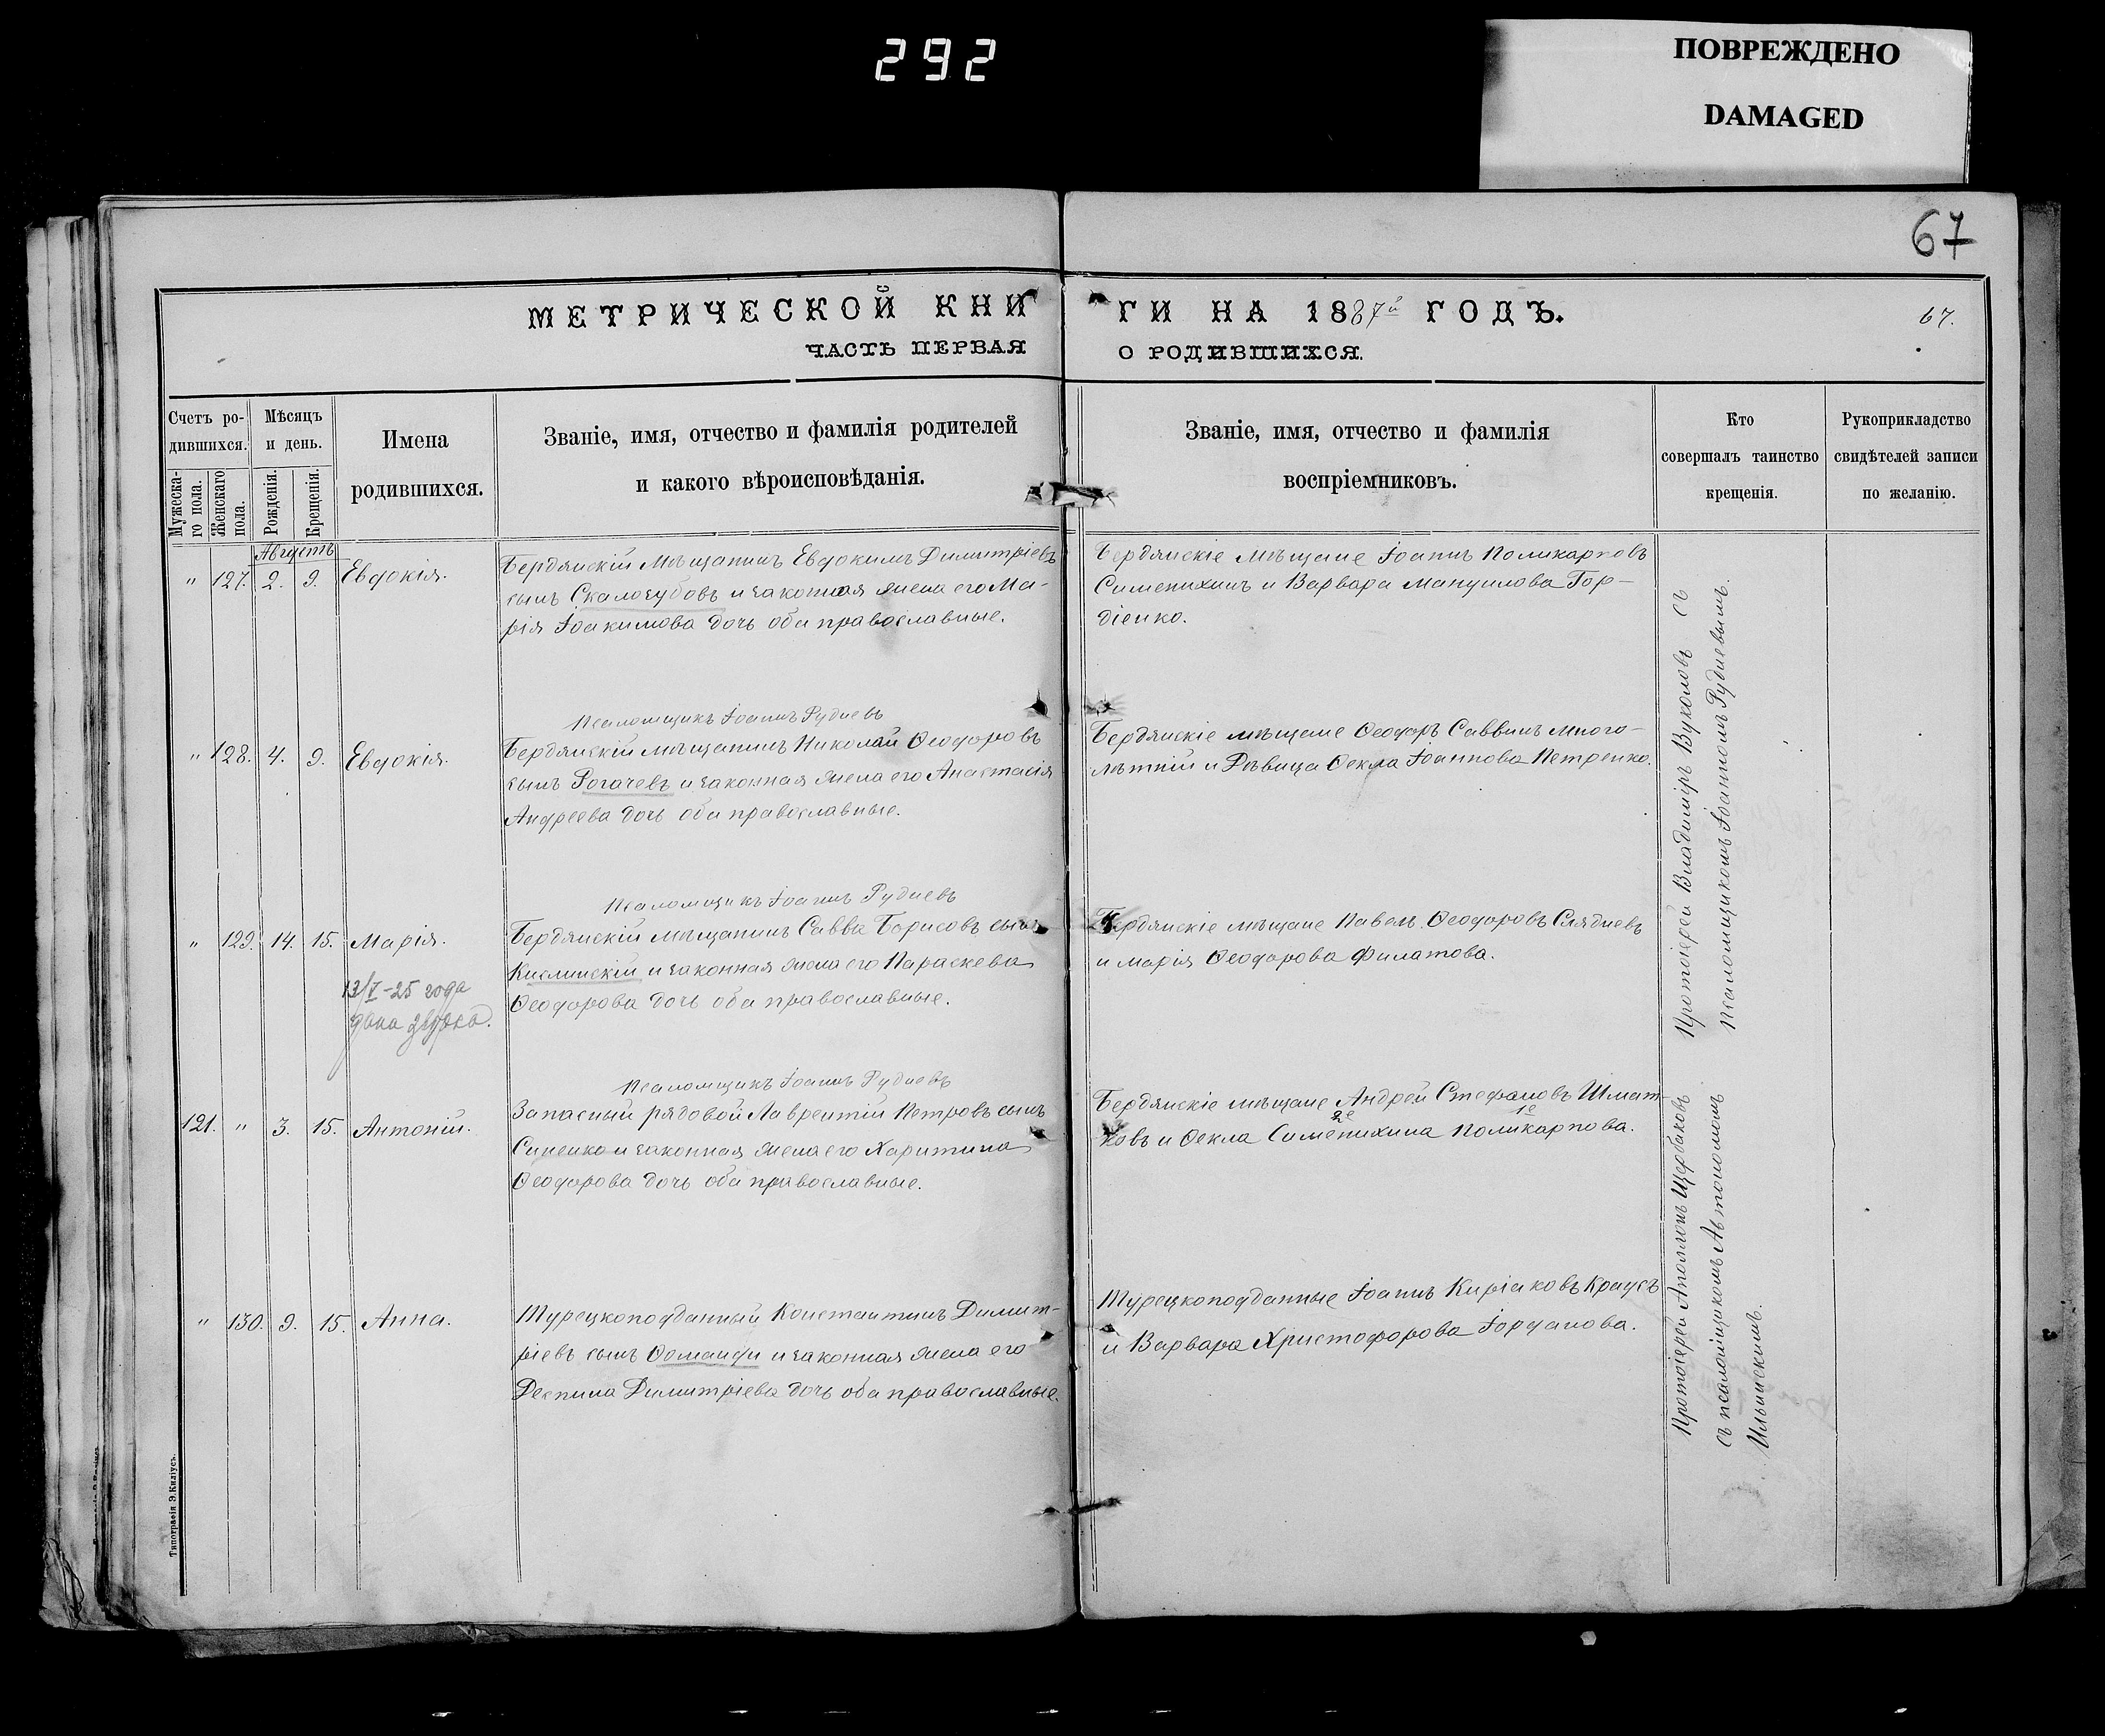 292
ПОВРЕЖДЕНО
DAMAGED
67
МЕТРИЧЕСКОЙ КНИГИ НА 1887й ГОДЪ.
67.
ЧАСТЬ ПЕРВАЯ О РОДИВШИХСЯ.
Счетъ ро-
дившихся.
Мужеска-
го пола.
Женскаго
пола.
Мѣсяцъ
и день.
Рожденія.
Крещенія.
Имена
родившихся.
Званіе, имя, отчество и фамилія родителей
и какого вѣроисповѣданія.
Званіе, имя, отчество и фамилія
воспріемниковъ.
Кто
совершалъ таинство
крещенія.
Рукоприкладство
свидѣтелей записи
по желанію.
Августъ
" 127. 2. 9. Евдокія.
Бердянскій мѣщанинъ Евдокимъ Димитріевъ
сынъ Скалозубовъ и законная жена его Ма-
рія Іоакимова дочь оба православные.
Бердянскіе мѣщане Іоаннъ Поликарповъ
Симепихинъ и Варвара Мануилова Гор-
діенко.
Псаломщикъ Іоаннъ Рудневъ
" 128. 4. 9. Евдокія.
Бердянскій мѣщанинъ Николай Ѳеодоровъ
сынъ Рогачевъ и законная жена его Анастасія
Андреева дочь оба православные.
Бердянскіе мѣщане Ѳеодоръ Саввинъ Много-
лѣтній и дѣвица Ѳекла Іоаннова Петренко.
Псаломщикъ Іоаннъ Рудневъ
" 129. 14. 15. Марія.
13/V-25 года
дана
Бердянскій мѣщанинъ Савва Борисовъ сынъ
Кислинскій и законная жена его Параскева
Ѳеодорова дочь оба православные.
Бердянскіе мѣщане Павелъ Ѳеодоровъ Слядневъ
и Марія Ѳеодорова Филатова.
Протоіерей Владиміръ Вуколовъ съ
псаломщикомъ Іоанномъ Рудневымъ.
Псаломщикъ Іоаннъ Рудневъ
121. " 3. 15. Антоній.
Запасный рядовой Лаврентій Петровъ сынъ
Синенко и законная жена его Харитина
Ѳеодорова дочь оба православные.
Бердянскіе мѣщане Андрей Стефановъ Шмат-
2е 1е
ковъ и Ѳекла Симепихина Поликарпова.
" 130. 9. 15. Анна.
Турецкоподданный Константинъ Димит-
ріевъ сынъ и законная жена его
Деспина Димитріева дочь оба православные.
Турецкоподданные Іоаннъ Киріаковъ Краусъ
и Варвара Христофорова Іорданова.
Протоіерей Аполлонъ Щербаковъ
съ псаломщикомъ Автономомъ
Ильинскимъ.
Типографія Э.Киліусъ.